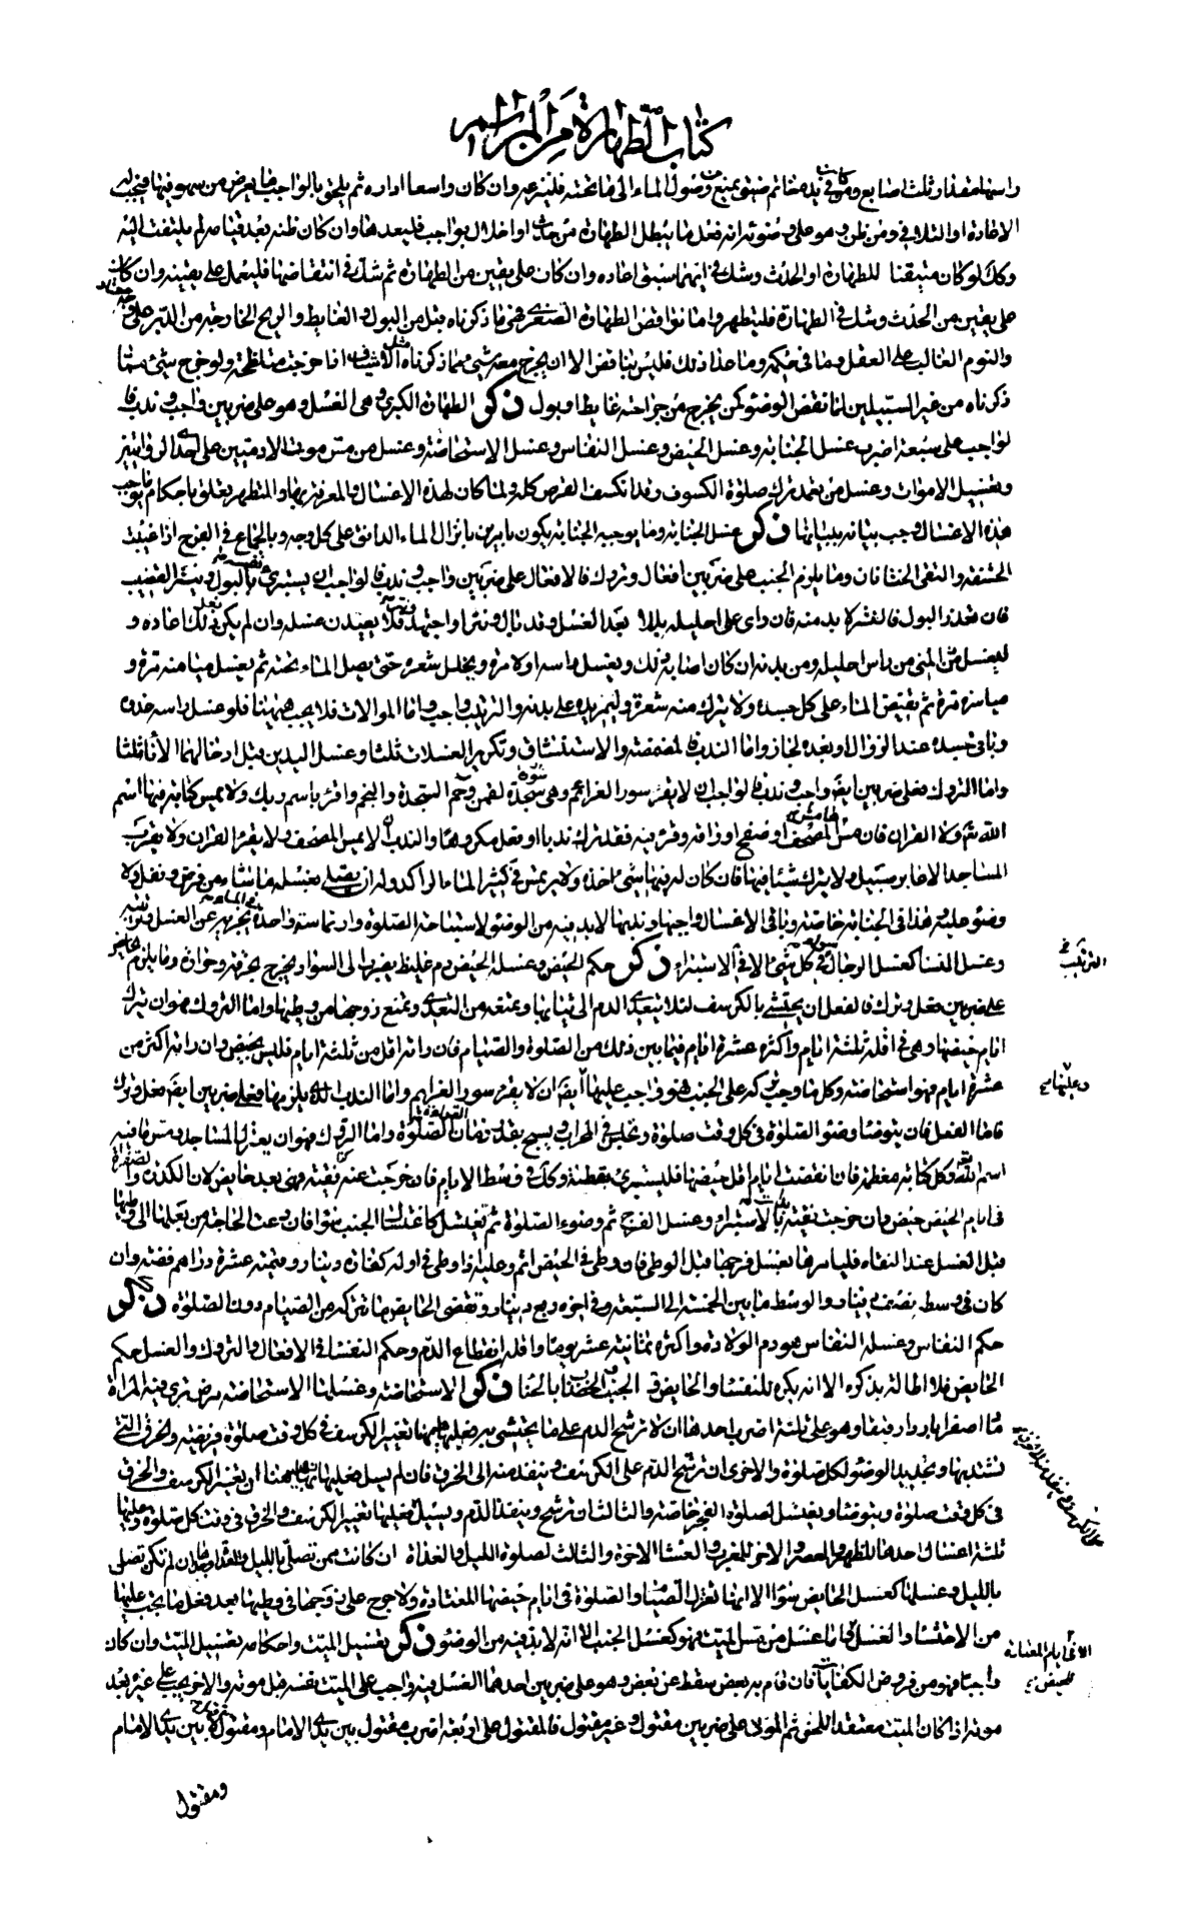 كتاب الطهارة من المراسم
واسفلها مقدار ثلث اصابع ومن كان في يده خاتم ضيق يمنع من وصول الماء الى ما تحته فلينزعه وان كان واسعا اداره ثم يلحق بالواجب ما يعرض من سهو فيها فيجب له
الاعادة او التلافي ومن ظن وهو على وضوئه انه فعل ما يبطل الطهارة من حادث او اخلال بواجب فليعدها وان كان ظنه بعد قيامه لم يلتفت اليه
وكك لو كان متيقنا للطهارة او الحدث وشك في ايهما سبق اعاده وان كان على يقين من الطهارة ثم شك في انتقاضها فليعمل على يقينه وان كان
على يقين من الحدث وشك في الطهارة فليتطهر واما نواقض الطهارة الصغرى فهي ما ذكرناه قبل من البول والغايط والريح الخارجة من الدبر على وجه معتاد
والنوم الغالب على العقل وما في حكمه وما عدا ذلك فليس بناقض الا ان يخرج معه شيء مما ذكرناه مثل الاشياف اذا خرجت متلطخة ولو خرج شيء مما
ذكرناه من غير السبيلين لما نقض الوضوء كمن يخرج من جراحته غايط او بول ذكر الطهارة الكبرى وهي الغسل وهو على ضربين واجب وندب فا
لواجب على سبعة اضرب غسل الجنابة وغسل الحيض وغسل النفاس وغسل الاستحاضة وغسل من مس موت الادميين على احدى الروايتين
وتغسيل الاموات وغسل من تعمد ترك صلوة الكسوف وقد انكسف القرص كله ولما كان لهذه الاغسال والمعرفة بها والمتطهر تعلق باحكام ما يوجب
هذه الاغسال وجب بيانه ببيانها ذكر غسل الجنابة وما يوجبه الجنابة يكون بامرين بانزال الماء الدافق على كل وجه وبالجماع في الفرج اذا غيبت
الحشفة والتقى الختانان وما يلزم الجنب على ضربين افعال وتروك فالافعال على ضربين واجب وندب فالواجب ان يستبرئ نفسه بالبول وينتر القضيب
فان تعذر البول فالنتر لا بد منه فان راى على احليله بللا بعد الغسل وقد بال ونتر او اجتهد فلا يعيدن غسله وان لم يكن فعل ذلك اعاده و
ليغسل من المني من راس احليله ومن بدنه ان كان اصابه ذلك ويغسل راسه اولا مرة ويخلل شعره حتى يصل الماء تحته ثم يغسل ميامنه مرة و
مياسره مرة ثم يفيض الماء على كل جسده ولا يترك منه شعرة وليمر يديه على بدنه والترتيب واجب واما الموالات فلا يجب هيهنا فلو غسل راسه غدوة
وباقي جسده عند الزوال او بعده لجاز واما الندب فالمضمضة والاستنشاق وتكرير الغسلات ثلثا وغسل اليدين قبل ادخالهما الاناء ثلثا
واما التروك فعلى ضربين ايضا واجب وندب فالواجب ان لا يقرء سور العزايم وهي سجدة لقمن وحم السجدة والنجم واقرء باسم ربك ولا يمس كتابة فيها اسم
الله تع ولا القران فان مس هامش المصحف او صفح اوراقه وقرء فيه فقد ترك ندبا او فعل مكروها والندب ان لا يمس المصحف ولا يقرء القران ولا يقرب
المساجد الا عابر سبيل ولا يترك شيئا فيها فان كان له فيها شيء اخذه ولا يرتمس في كثير الماء الراكد وله ان يصلي بغسله ما شاء من فرض ونفل ولا
وضوء عليه هذا في الجنابة خاصة وباقي الاغسال واجبها وندبها لا بد فيه من الوضوء لاستباحة الصلوة وارتماسة واحدة في الماء يجزيه عن الغسل وترتيبه
وغسل النساء كغسل الرجال سواء في كل شيء الا في الاستبراء ذكر حكم الحيض وغسله الحيض دم غليظ يضرب الى السواد يخرج بحرقة وحرارة وما يلزم الحايض
على ضربين فعل وترك فالفعل ان يحتشي بالكرسف لئلا يتعدى الدم الى ثيابها وتمنعه من التعدي وتمنع زوجها من وطيها واما التروك فهو ان يترك
ايام حيضها وهي في اقله ثلثة ايام واكثره عشرة ايام فيما بين ذلك من الصلوة والصيام فان راته اقل من ثلثة ايام فليس بحيض وان راته اكثر من
عشرة ايام فهو استحاضة وكلما وجب تركه على الجنب هو واجب عليها ايضا ان لا يقرء سور العزايم واما الندب الذي يلزمها فعلى ضربين ايضا فعل وترك
فاما الفعل فان يتوضا وضوء الصلوة في كل وقت صلوة وتجلس في المحراب ويسبح بقدر زمان الصلوة واما التروك فهو ان يعتزل المساجد ومس ما فيه
اسم الله وكل كتابة معظمة فان نقضت ايام اقل حيضها فليستبرئ بقطنة وكك في وسط الايام فان خرجت غير نقية فهي بعد حايض لان الكدرة والصفرة
في ايام الحيض حيض وان خرجت نقية بالاستبراء وغسل الفرج ثم وضوء الصلوة ثم تغتسل كاغتسال الجنب سواء فان دعت الحاجة من بعلها الى وطيها
قبل الغسل عند النقاء فليامرها بغسل فرجها قبل الوطي فان وطى في الحيض اثم وعليه اذا وطى في اوله كفارة دينار وقيمته عشرة دراهم فضة وان
كان في وسطه نصف دينار والوسط ما بين الخمسة الى السبعة وفي اخره ربع دينار وتقضي الحايض ما تتركه من الصيام دون الصلوة ذكر
حكم النفاس وغسله النفاس هو دم الولادة واكثره ثمانية عشر يوما واقله انقطاع الدم وحكم النفساء في الافعال والتروك والغسل حكم
الحايض فلا اطالة بذكره الا انه يكره للنفساء والحايض والجنب الخضاب بالحنا ذكر الاستحاضة وغسلها الاستحاضة مرض ترى فيه المراة
دما اصفر باردا رقيقا وهو على ثلثة اضرب احدها ان لا ترشح الدم على ما يحتشي به فعليها هيهنا تغيير الكرسف في كل وقت صلوة فريضة والخرق التي
تشد بها وتجديد الوضوء لكل صلوة والاخرى ان ترشح الدم على الكرسف وينفذ منه الى الخرق فان لم يسل فعليها هيهنا ان تغير الكرسف والخرق
في كل وقت صلوة ويتوضا ويغتسل لصلوة الفجر خاصة والثالث ان ترشح وينفذ الدم ويسيل فعليها تغيير الكرسف والخرق في وقت كل صلوة وعليها
ثلثة اغسال احدها للظهر والعصر والاخر للمغرب والعشاء الاخرة والثالث لصلوة الليل والغداة ان كانت ممن تصلي بالليل والغداة وحدها ان لم تكن تصلي
بالليل وغسلها كغسل الحايض سواء الا انها تعتزل الصيام والصلوة في ايام حيضها المعتادة ولا حرج على زوجها في وطيها بعد فعل ما يجب عليها
من الاحتشاء والغسل فاما غسل من مس الميت فهو كغسل الجنب الا انه لا بد فيه من الوضوء ذكر تغسيل الميت واحكامه تغسيل الميت وان كان
واجبا فهو من فروض الكفايات فان قام به بعض سقط عن بعض وهو على ضربين احدهما الغسل فيه واجب على الميت نفسه قبل موته والاخر يجب على غيره بعد
موته اذا كان الميت معتقدا للحق ثم الموتى على ضربين مقتول وغير مقتول فالمقتول على اربعة اضرب مقتول بين يدي الامام ومقتول لا بين يدي الامام
ومقتول
الترتيب
وعليها
الا في ايام المعتادة